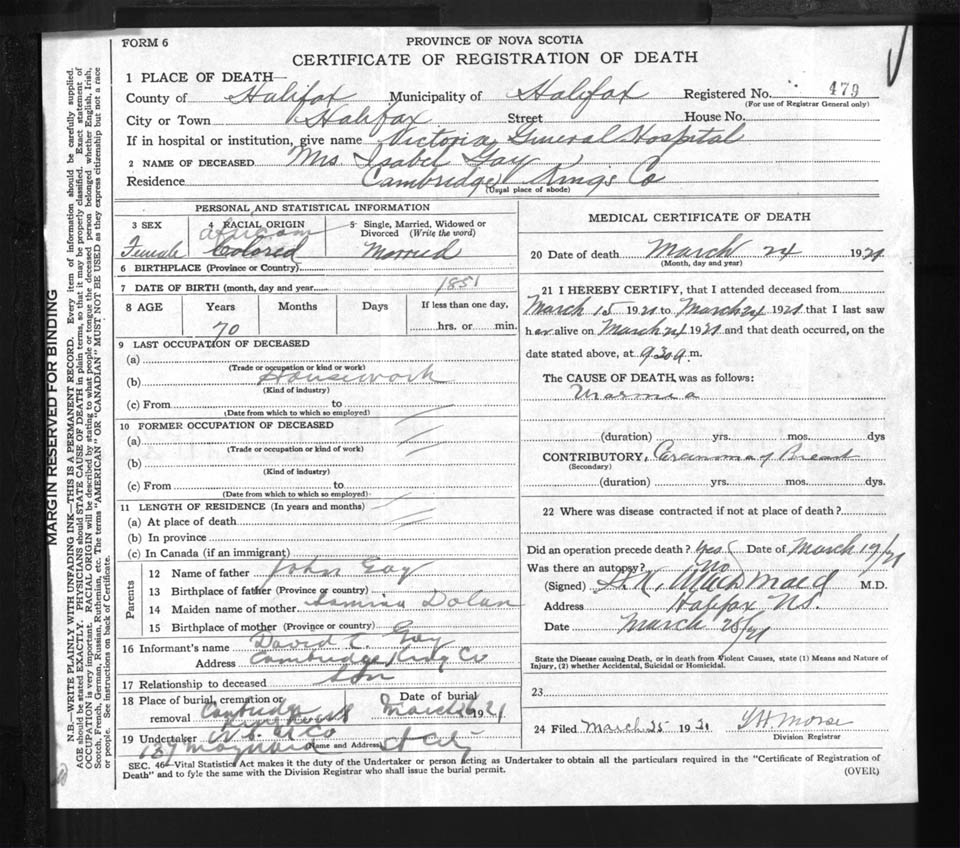 FORM 6
PROVINCE OF NOVA SCOTIA
CERTIFICATE OF REGISTRATION OF DEATH
1 PLACE OF DEATH—
County of Halifax Municipality of Halifax Registered No. 479
(For use of Registrar General only)
City or Town Halifax Street House No.
If in hospital or institution, give name Victoria General Hospital
2 NAME OF DECEASED Mrs Isabel Gay
Residence Cambridge Kings Co
(Usual place of abode)
PERSONAL AND STATISTICAL INFORMATION
3 SEX 4 RACIAL ORIGIN 5 Single, Married, Widowed or Divorced (Write the word)
African
Female Colored Married
6 BIRTHPLACE (Province or Country)
7 DATE OF BIRTH (month, day and year) 1851
8 AGE Years Months Days If less than one day,
70 hrs. or min.
9 LAST OCCUPATION OF DECEASED
(a)
(Trade or occupation or kind or work)
(b) Housework
(Kind of industry)
(c) From to
(Date from which to which so employed)
10 FORMER OCCUPATION OF DECEASED
(a)
(Trade or occupation or kind of work)
(b)
(Kind of industry)
(c) From to
(Date from which to which so employed)
11 LENGTH OF RESIDENCE (In years and months)
(a) At place of death
(b) In province
(c) In Canada (if an immigrant)
Parents
12 Name of father John Gay
13 Birthplace of father (Province or country)
14 Maiden name of mother Dolan
15 Birthplace of mother (Province or country)
16 Informant's name David C. Gay
Address Cambridge Kings Co
17 Relationship to deceased Son
18 Place of burial, cremation or removal Cambridge Date of burial March 26 1921
19 Undertaker Co
(Name and Address)
137 Maynard St City
MEDICAL CERTIFICATE OF DEATH
20 Date of death March 24 1921
(Month, day and year)
21 I HEREBY CERTIFY, that I attended deceased from
March 15 1921 to March 24 1921 that I last saw
her alive on March 24 1921 and that death occurred, on the
date stated above, at 9 30 a.m.
The CAUSE OF DEATH was as follows:
(duration) yrs. mos. dys
CONTRIBUTORY, Carcinoma of Breast
(Secondary)
(duration) yrs. mos. dys.
22 Where was disease contracted if not at place of death?
Did an operation precede death? Yes Date of March 19/21
Was there an autopsy? No
(Signed) M.D.
Address Halifax N.S.
Date March 25/21
State the Disease causing Death, or in death from Violent Causes, state (1) Means and Nature of
Injury, (2) whether Accidental, Suicidal or Homicidal.
23
24 Filed March 25 1921 Morse
Division Registrar
SEC. 46—Vital Statistics Act makes it the duty of the Undertaker or person acting as Undertaker to obtain all the particulars required in the "Certificate of Registration of
Death" and to fyle the same with the Division Registrar who shall issue the burial permit.
(OVER)
MARGIN RESERVED FOR BINDING
N.B.—WRITE PLAINLY WITH UNFADING INK—THIS IS A PERMANENT RECORD. Every item of information should be carefully supplied.
AGE should be stated EXACTLY. PHYSICIANS should STATE CAUSE OF DEATH in plain terms, so that it may be properly classified. Exact statement of
OCCUPATION is very important. RACIAL ORIGIN will be described by stating to what people or tongue the deceased person belonged whether English, Irish,
Scotch, French, German, Russian, Ruthenian, etc. The terms "AMERICAN" OR "CANADIAN" MUST NOT BE USED as they express citizenship but not a race
or people. See instructions on back of Certificate.